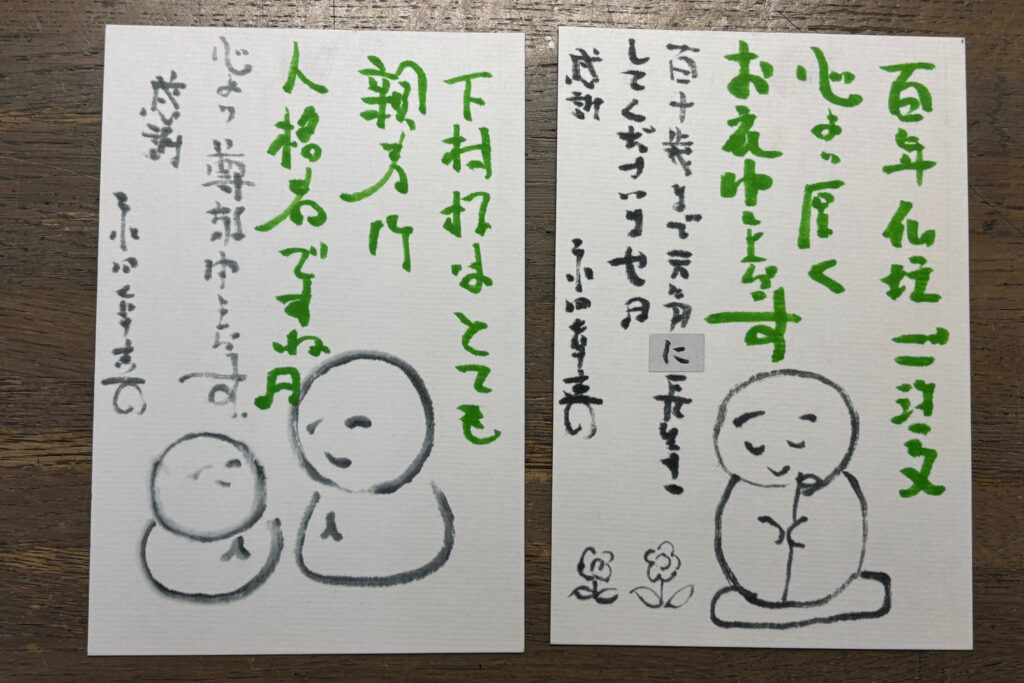 百年仏壇ご注文
心より厚く
お礼申し上げます
百十歳まで元気に長生き
してくださいませ
感謝
下村様はとても
親切で
人格者ですね
心より尊敬申し上げます。
感謝